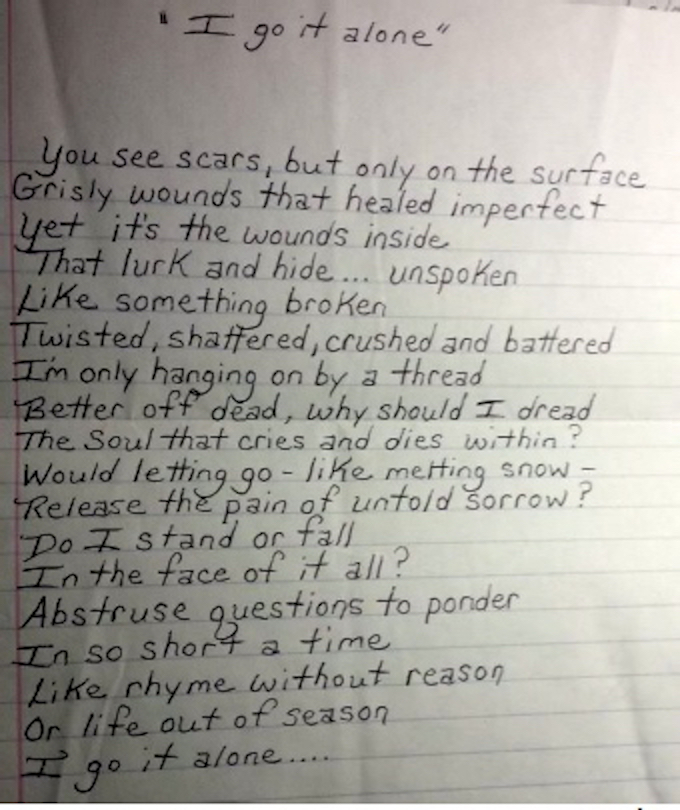 "I go it alone"
You see scars, but only on the surface
Grisly wounds that healed imperfect
Yet it's the wounds inside
That lurk and hide... unspoken
Like something broken
Twisted, shattered, crushed and battered
I'm only hanging on by a thread
Better off dead, why should I dread
The Soul that cries and dies within?
Would letting go - like melting snow -
Release the pain of untold sorrow?
Do I stand or fall
In the face of it all?
Abstruse questions to ponder
In so short a time
Like rhyme without reason
Or life out of season
I go it alone....